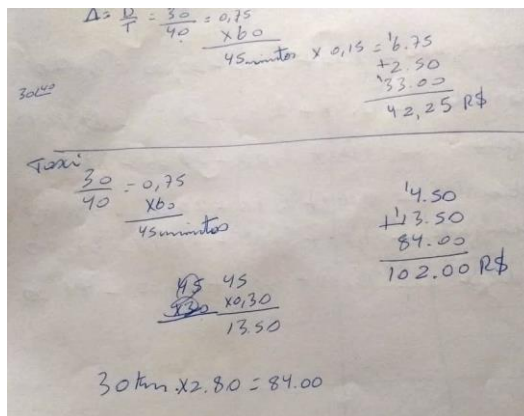 Δ= D/T = 30/40 = 0,75
x60
45 minutos x 0,15 = 6.75
+2.50
33.00
42,25 R$
Taxi
30/40 = 0,75
x60
45 minutos
4.50
+13.50
84.00
102.00 R$
45
x0,30
13.50
30 km x 2.80 = 84.00